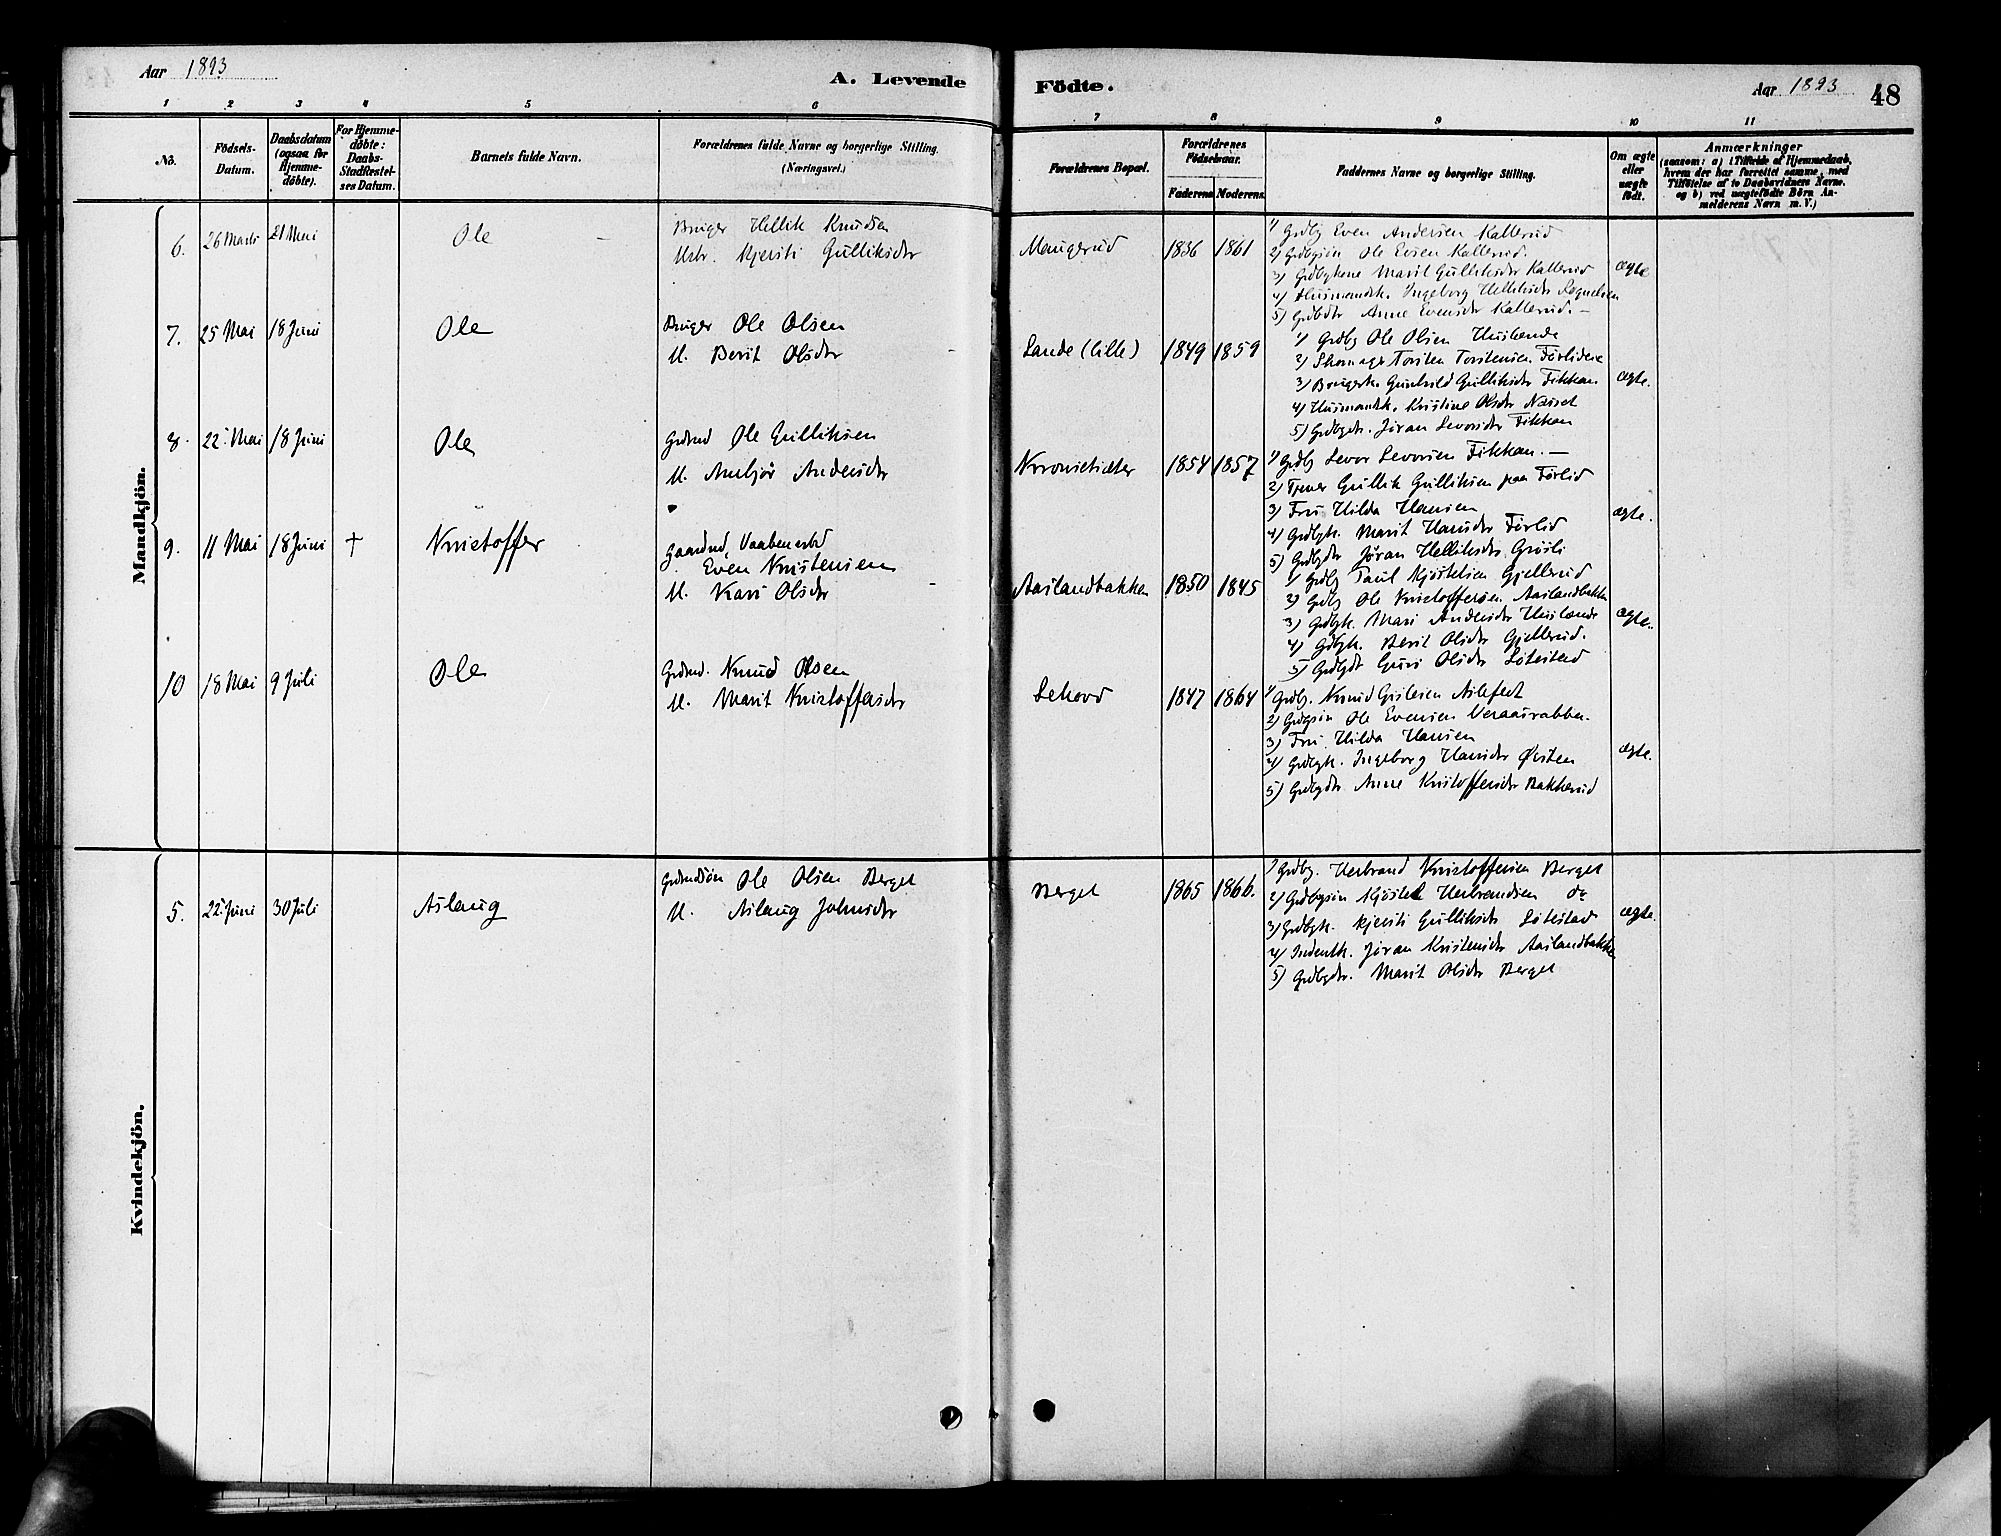 Aar 1893
A. Levende
Fødte.
Aar 1893
48
1 2 3 4 5 6 7 8 9 10 11
No.
Födsels-
Datum.
Daabsdatum
(ogsaa for
Hjemme-
döbte).
For Hjemme-
döbte:
Daabs-
Stadfæstel-
ses Datum.
Barnets fulde Navn.
Forældrenes fulde Navne og borgerlige Stilling.
(Næringsvei.)
Forældrenes Bopæl.
Forældrenes
Födselsaar.
Faderens Moderens
Faddernes Navne og borgerlige Stilling.
Om ægte
eller
uægte
født.
Anmærkninger
(saasom: a) i Tilfælde af Hjemmedaab,
hvem der har forrettet samme, med
Tilføielse af to Daabsvidners Navne.
og b) ved uægtefødte Börn An-
melderens Navn m. V.)
Mandkjön.
6. 26 Marts 21 Mai
Ole
Bruger Hellik Knudsen
Hstr. Kjersti Gulliksdtr
Maugerud
1836 1861
1) Grdbg Even Andersen Kallerud
2) Grdbgsön Ole Evsen Kallerud.
3) Grdbgkone Marit Gulliksdtr Kallerud
4) Husmandsk. Ingeborg Helliksdtr
5) Grdbdtr Anne Evensdtr Kallerud. —
ægte
7. 25 Mai 18 Juni
Ole
Bruger Ole Olsen
H. Berit Olsdtr
Lande (lille)
1849 1859
1) Grdbg Ole Olsen Huslænde
2) Skomager Torsten Torstensen Førlidene
3) Brugerk. Gunhild Gulliksdtr Fikkan
4) Husmandsk. Kristine Olsdtr Næset
5) Grdbgdtr. Jøran Levorsdtr Fikkan
ægte.
8. 22 Mai 18 Juni
Ole
Grdmd Ole Gulliksen
H. Ambjør Andersdtr
1854 1857
1) Grdbg Levor Levorsen Fikkan. —
2) Gullik Gulliksen paa Førlid
3) Fru Hilda Hansen
4) Grdbgk. Marit Hansdtr Førlid
5) Grdbgdtr Jøran Helliksdtr Grösli
ægte.
9. 11 Mai 18 Juni †
Kristoffer
Gaardmd, Vaabensmed
Even Kristensen
H. Kari Olsdtr
Aaslandbakken
1850 1845
1) Grdbg Paul Kjöstelsen Gjellerud
2) Grdbg Ole Kristoffersen Aaslandbakke
3) Grdbgk. Mari Andersdtr Huslænde
4) Grdbgk. Berit Olsdtr Gjellerud.
5) Grdbgdt Guri Olsdtr Løtestad
ægte.
10 18 Mai 9 Juli
Ole
Grdmd. Knud Olsen
H. Marit Kristoffersdtr
Sehovd
1847 1864
1) Grdbg. Knud Gislesen
2) Grdbgsön Ole Evensen
3) Fru Hilda Hansen
4) Grdbgk. Ingeborg Hansdtr Østen
5) Grdbgdtr Anne Kristoffersdtr Bakkerud
ægte.
Kvindekjön.
5. 22 Juni 30 Juli
Aslaug
Grdmdsön Ole Olsen Berget
H. Aslaug Johnsdtr
Berget
1865 1866.
1) Grdbg. Herbrand Kristoffersen Berget
2) Grdbgsön Kjöstel Herbrandsen do
3) Grdbgk. Kjersti Gulliksdtr Løtestad
4) Inderstk. Jøran Kristensdtr Aaslandbakke
5) Grdbgdtr. Marit Olsdtr Berget
ægte.